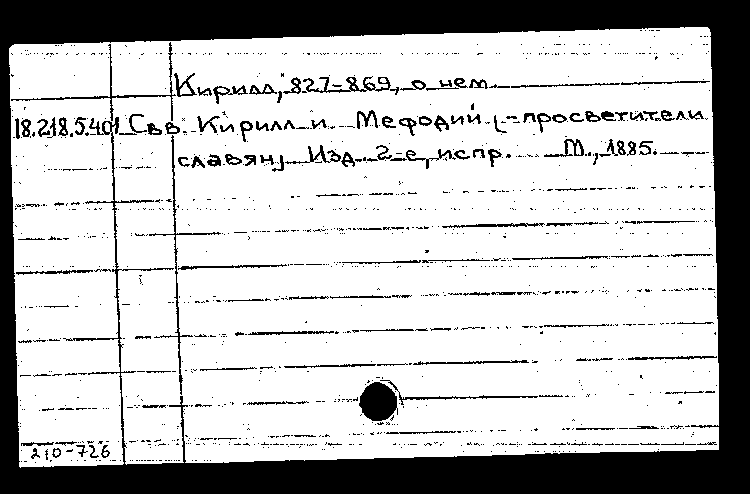 Кирилл, 827-869, о нем.
18.218.5.401 Свв. Кирилл и Мефодий (-просветители
славян) Изд. 2-е, испр. М., 1885.
210-726